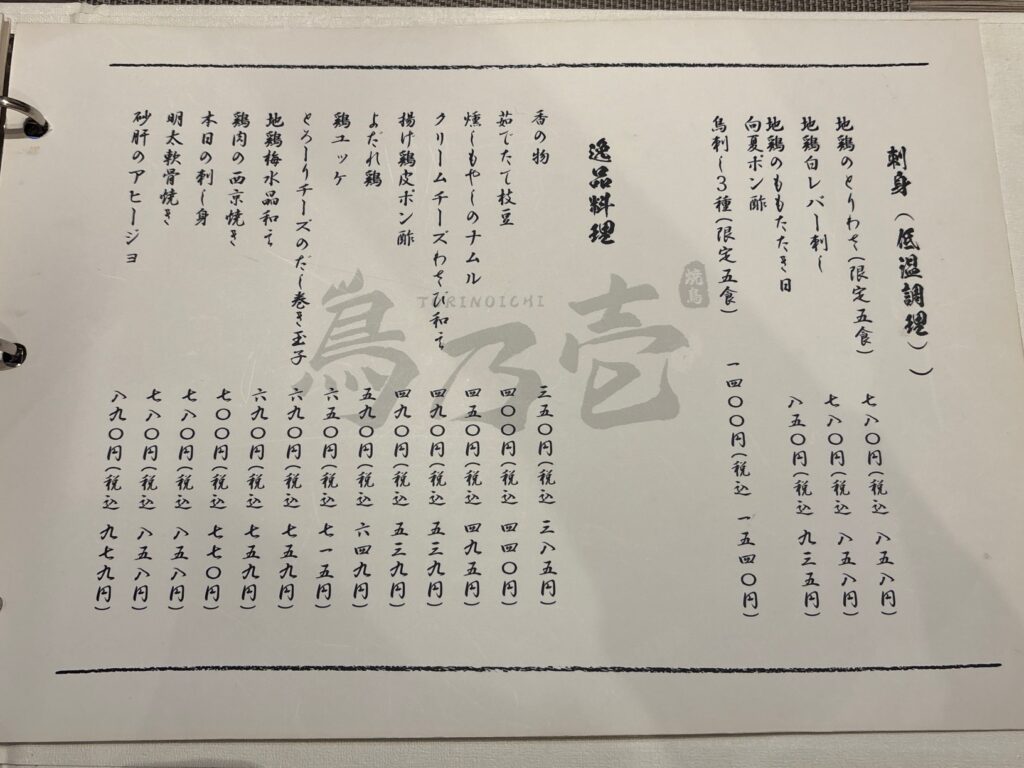 刺身(低温調理))
地鶏のとりわさ(限定五食) 七八〇円(税込 八五八円)
地鶏白レバー刺し 七八〇円(税込 八五八円)
地鶏のももたたき日
向夏ポン酢 八五〇円(税込 九三五円)
鳥刺し3種(限定五食) 一四〇〇円(税込 一五四〇円)
逸品料理
香の物 三五〇円(税込 三八五円)
茹でたて枝豆 四〇〇円(税込 四四〇円)
燻しもやしのナムル 四五〇円(税込 四九五円)
クリームチーズわさび和え 四九〇円(税込 五三九円)
揚げ鶏皮ポン酢 四九〇円(税込 五三九円)
よだれ鶏 五九〇円(税込 六四九円)
鶏ユッケ 六五〇円(税込 七一五円)
とろーりチーズのだし巻き玉子 六九〇円(税込 七五九円)
地鶏梅水晶和え 六九〇円(税込 七五九円)
鶏肉の西京焼き 七〇〇円(税込 七七〇円)
本日の刺し身 七八〇円(税込 八五八円)
明太軟骨焼き 七八〇円(税込 八五八円)
砂肝のアヒージョ 八九〇円(税込 九七九円)
焼鳥
TORINOICHI
鳥乃壱